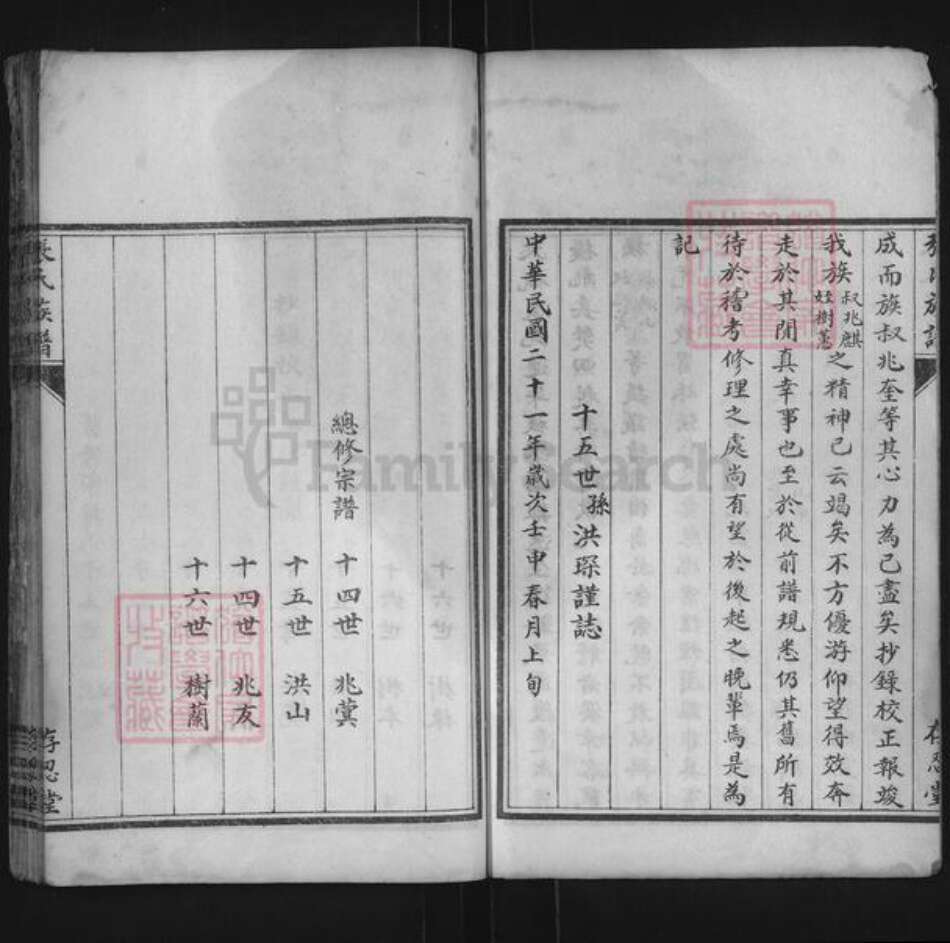 成而族叔兆奎等其心力為已盡矣抄錄校正報竣
我族叔兆麒姪樹蕙之精神已云竭矣不方優游仰望得效奔
走於其閒真幸事也至於從前譜規悉仍其舊所有
待於稽考修理之處尚有望於後起之晚輩焉是為
記
十五世孫洪琛謹誌
中華民國二十一年歲次壬申春月上旬
總修宗譜 十四世 兆蓂
十五世 洪山
十四世 兆友
十六世 樹蘭
張氏族譜
存忍堂
FamilySearch